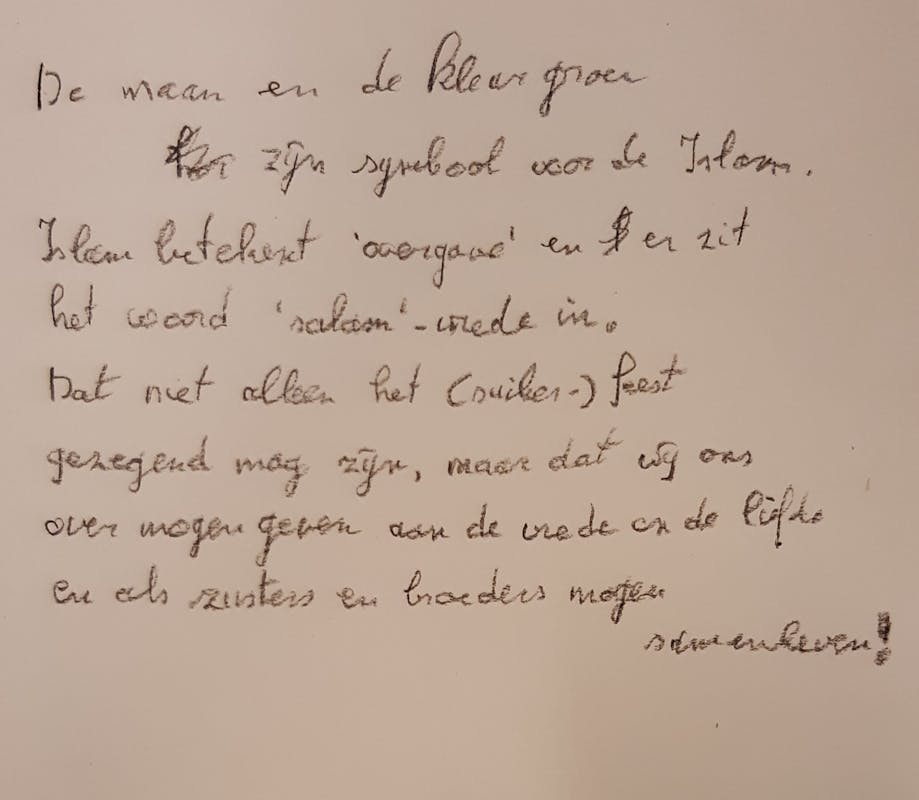 De maan en de kleur groen
zijn symbool voor de Islam.
Islam betekent 'overgave' en er zit
het woord 'salam'-vrede in.
Dat niet alleen het (suiker-) feest
gezegend mag zijn, maar dat wij ons
over mogen geven aan de vrede en de liefde
en als zusters en broeders mogen
samenleven!